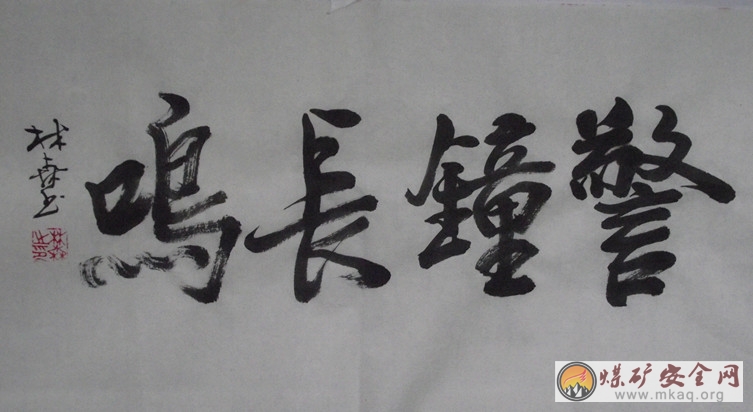 警鐘長鳴
煤矿安全网
www.mkaq.org